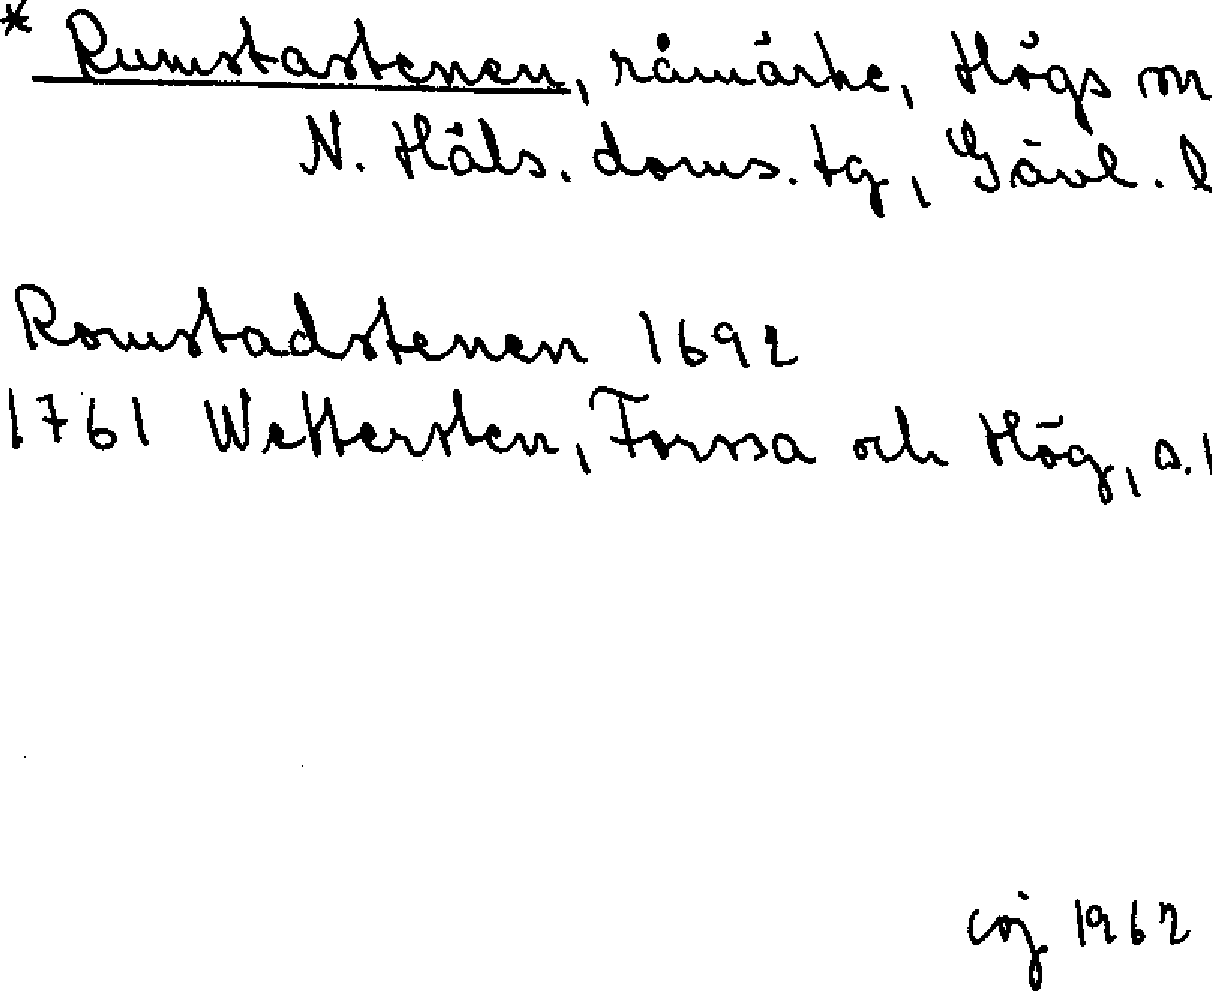 * Rumstastenen, råmärke, Högs sn
N. Häls. doms. tg, Gävl. l
Romstadstenen 1692
1761 Wettersten, Forssa och Hög, s. 1
coj 1962